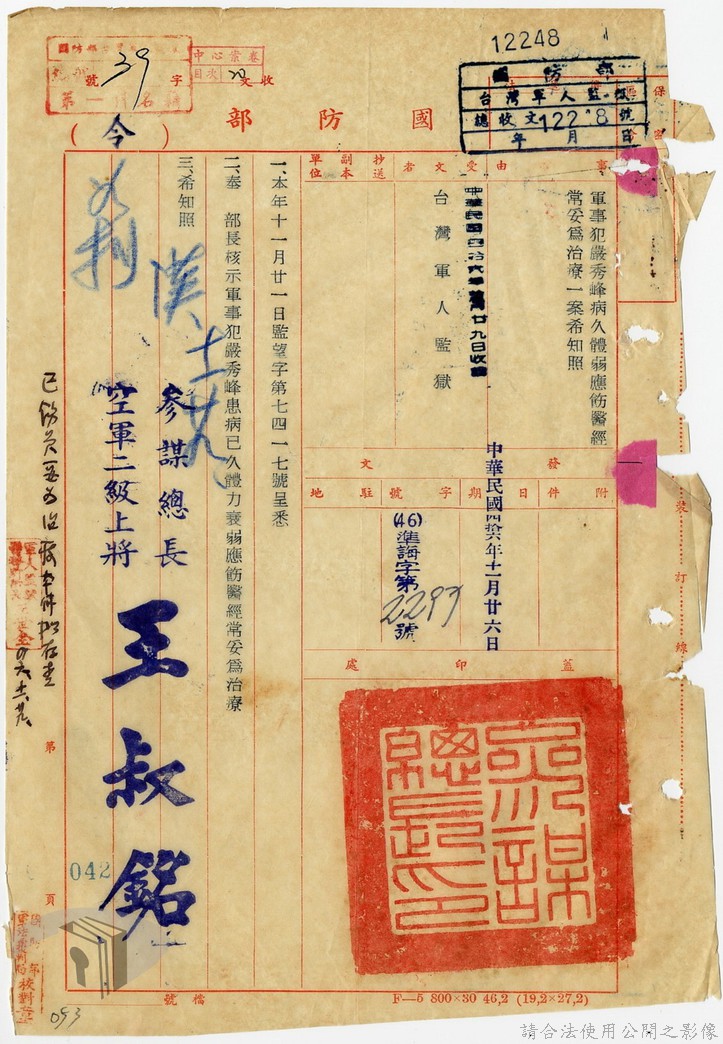 12248
國防部
台灣軍人監獄
總收文12248號
年 月 日
中心索卷
目次
收文 字 39 號
國防部
(令)
保
事由
受文者
抄送
副本
單位
軍事犯嚴秀峰病久體弱應飭醫經
常妥為治療一案希知照
中華民國四拾六年 廿九日收
台灣軍人監獄
發文
附件
日期
字號
駐地
中華民國四拾六年十一月廿六日
(46)準海字第
2297
號
蓋印處
參謀總長印
一、本年十一月廿一日監望字第七四一七號呈悉
二、奉 部長核示軍事犯嚴秀峰患病已久體力衰弱應飭醫經常妥為治療
三、希知照
參謀總長
空軍二級上將
王叔銘
裝訂線
第
042
頁
校對章
093
檔號
F—5 800×30 46,2 (19,2×27,2)
請合法使用公開之影像